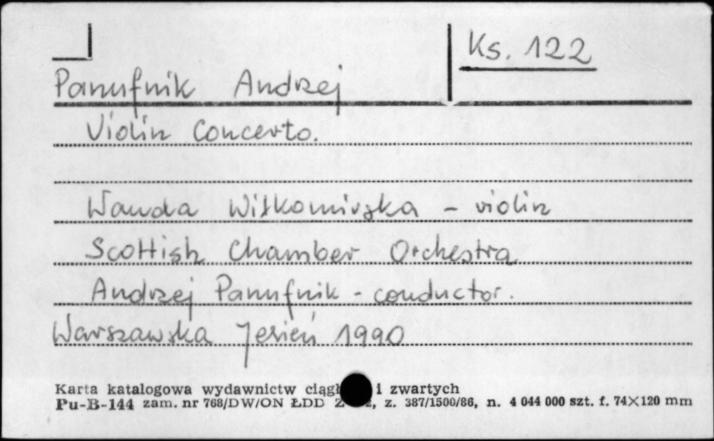 Ks. 122
Panufnik Andrzej
Violin Concerto.
Wanda Wiłkomirska - violin
Scottish Chamber Orchestra
Andrzej Panufnik - conductor.
Warszawska Jesień 1990
Karta katalogowa wydawnictw i zwartych
Pu-B-144 zam. nr 768/DW/ON ŁDD z. 387/1500/86, n. 4 044 000 szt. f. 74×120 mm